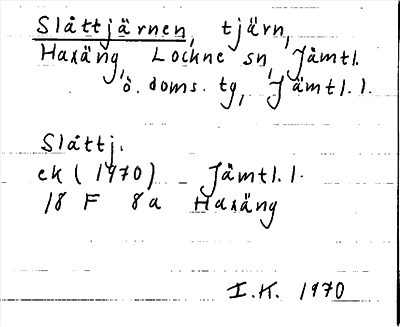 Slåttjärnen, tjärn,
Haxäng, Lockne sn, Jämtl.
ö. doms. tg, Jämtl. l.
Slåttj.
ek (1970) Jämtl. l.
18 F 8a Haxäng
I.K. 1970